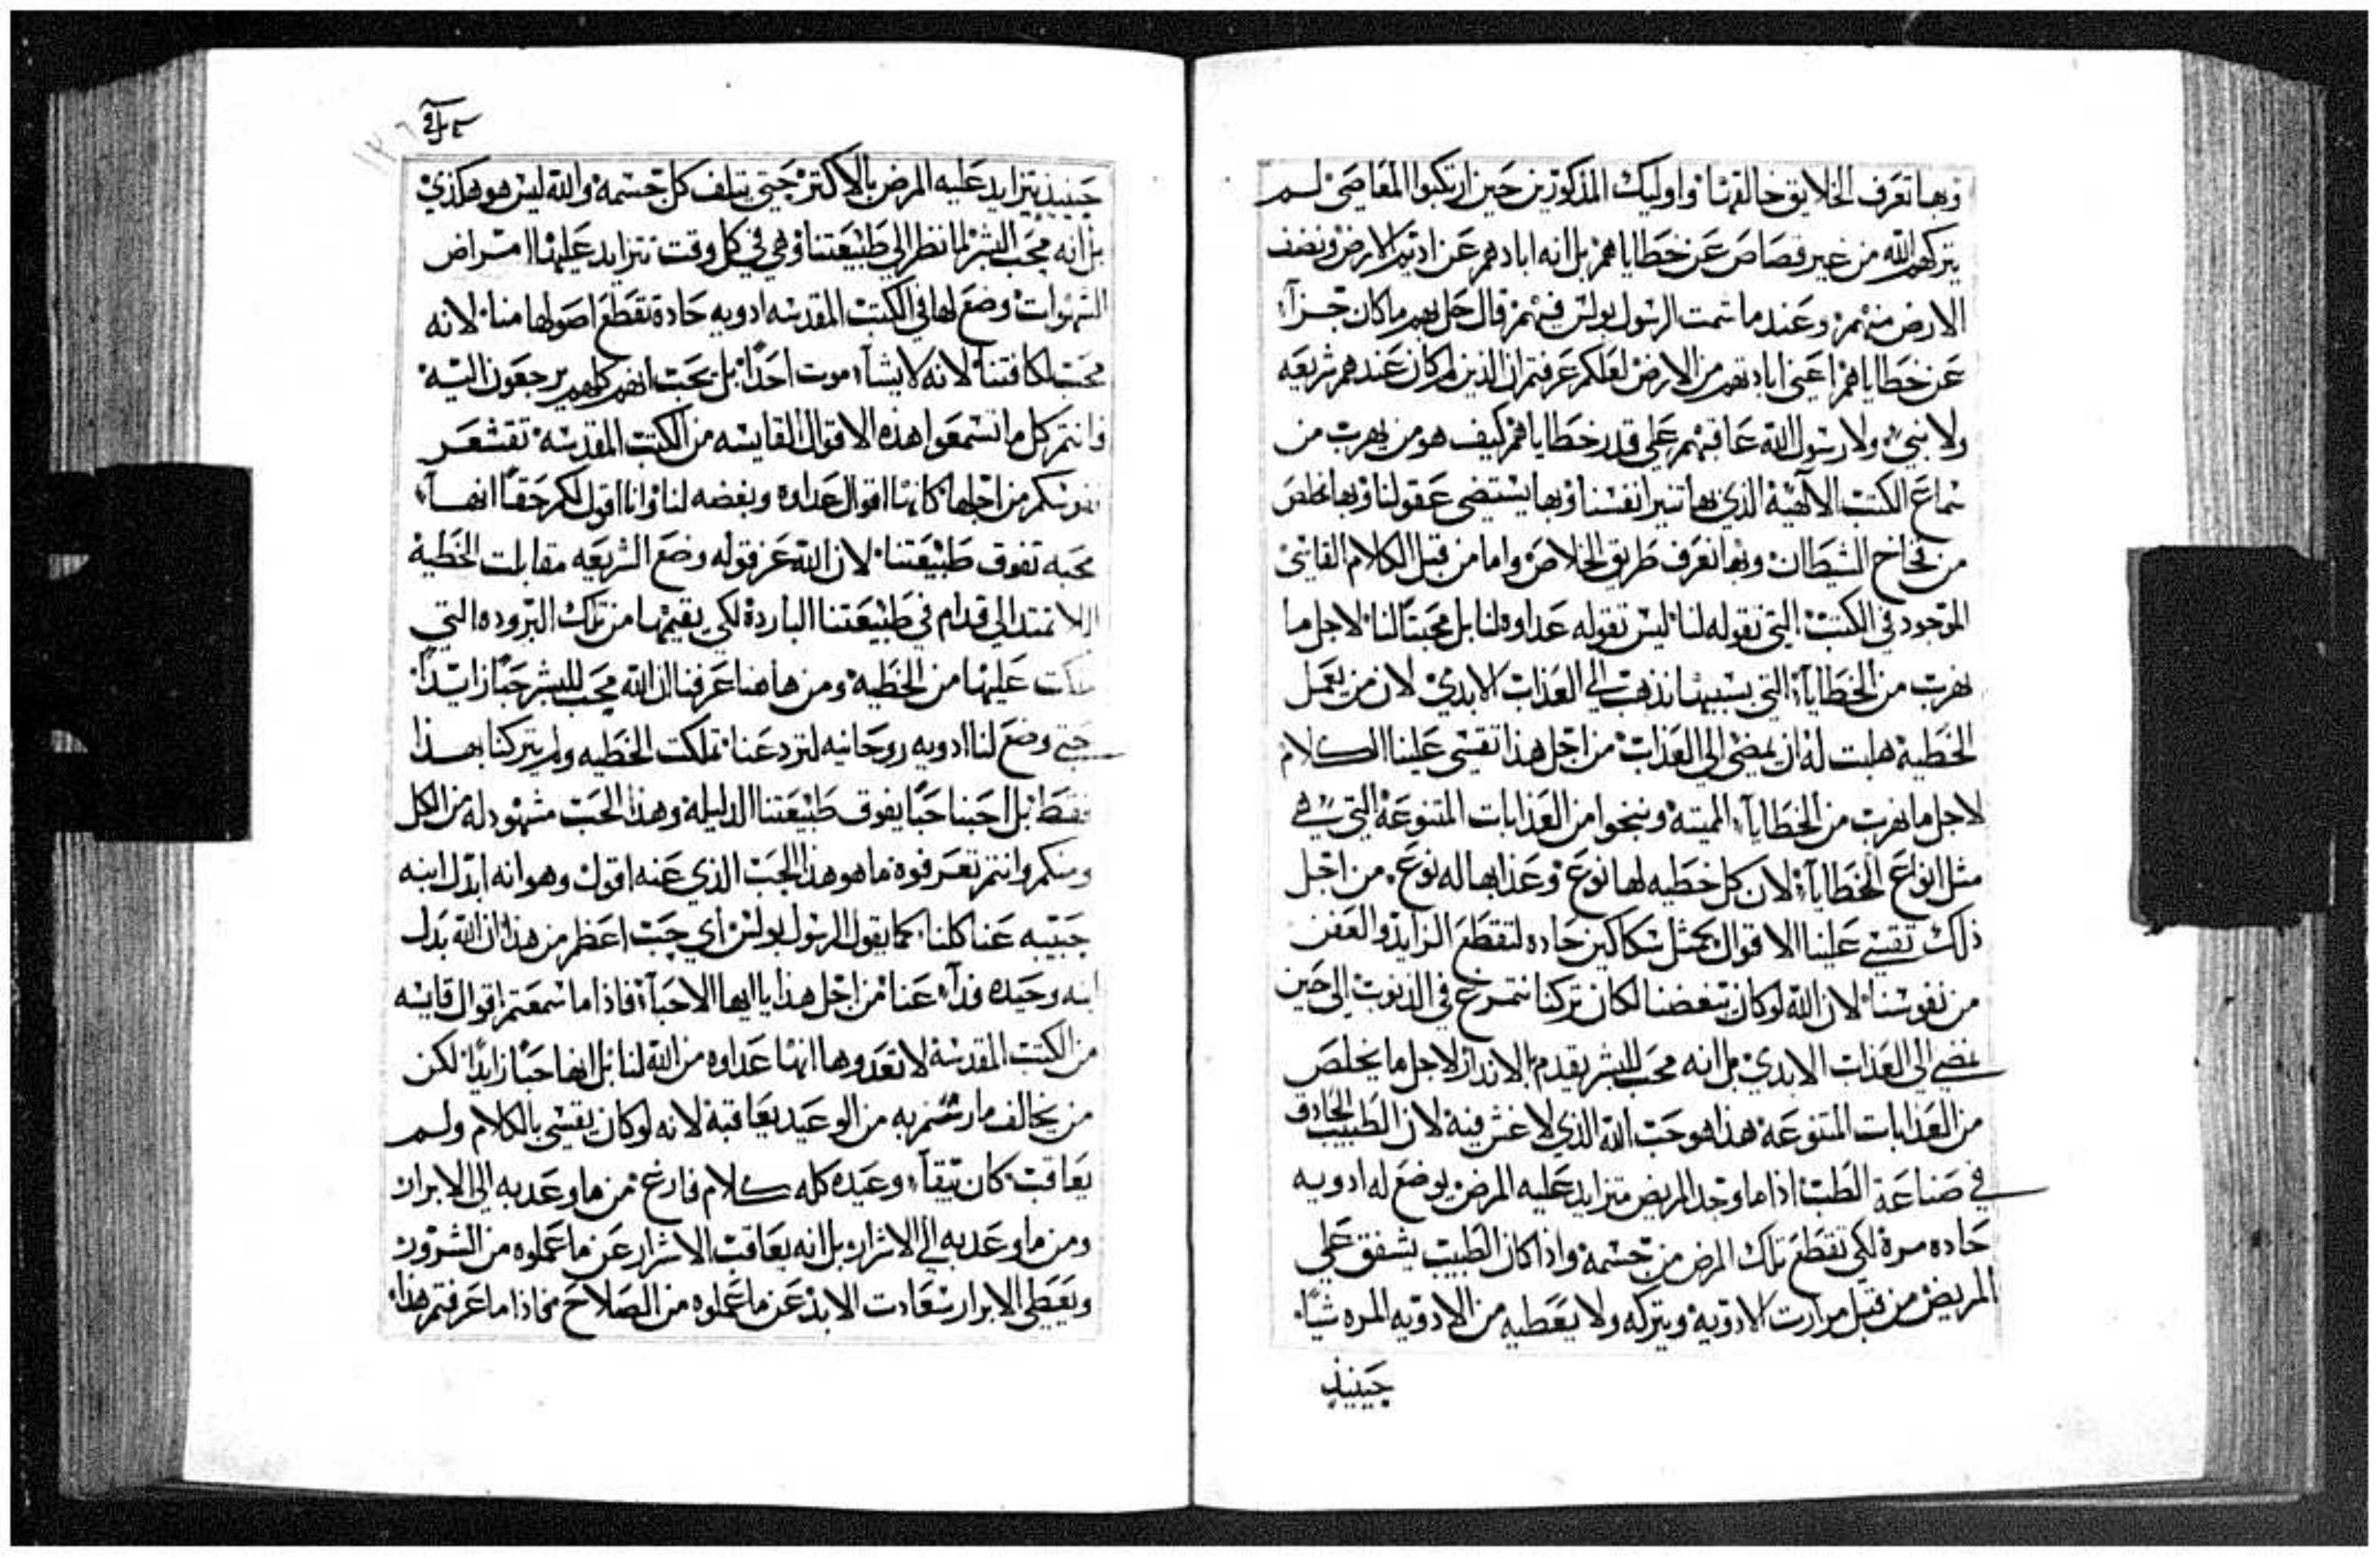 وبها تعرف الخلايق خالقها واوليك المذكورين حين ارتكبوا المعاصي لم
يتركهم الله من غير قصاص عن خطاياهم بل انه ابادهم عن اديم الارض ونضف
الارض منهم وعند ما شمت الرسول بولس فيهم قال حل بهم ما كان جزآء
عن خطاياهم اعني ابادتهم من الارض لعلكم عرفتم ان الذين لم كان عندهم شريعه
ولا نبي ولا رسول الله عاقبهم علي قدر خطاياهم كيف هو من يهرب من
سماع الكتب الالهية الذي بها تنير انفسنا وبها يستضي عقولنا وبها نخلص
من فخاخ الشيطان وبها نعرف طريق الخلاص واما من قبل الكلام القاسي
الموجود في الكتب التي نقوله لنا ليس تقوله عداوه لنا بل محبتًا لنا لاجل ما
نهرب من الخطايآء التي بسببها نذهب الي العذاب الابدي لان من يعمل
الخطية هلبت له ان يمضي الي العذاب من اجل هذا تقسي علينا الكلام
لاجل ما نهرب من الخطايآء المميته وننجوا من العذابات المتنوعة التي هي
مثل انواع الخطايآء لان كل خطيه لها نوع وعذابها له نوع من اجل
ذلك تقسي علينا الاقوال كمثل سكاكين حاده لتقطع الزايد والعفن
من نفوسنا لان الله لو كان يبغضنا لكان تركنا نتمرغ في الذنوب الي حين
نمضي الي العذاب الابدي بل انه محب للبشر يقدم الاندار لاجل ما يخلص
من العذابات المتنوعة هذا هو حب الله الذي لا غش فيه لان الطبيب الحادق
في صناعة الطب اذا ما وجد المريض متزايد عليه المرض يوضع له ادويه
حاده مرة لكي تقطع تلك المرض من جسمه واذا كان الطبيب يشفق علي
المريض من قبل مرارت الادويه ويتركه ولا يعطيه من الادويه المره شيًا
حينيذ
حينيذ يتزايد عليه المرض بالاكتر حتي يتلف كل جسمه والله ليس هو هكذي
بل انه محب البشر لما نظر الي طبيعتنا وهي في كل وقت تتزايد عليها امراض
الشهوات وضع لها في الكتب المقدسه ادويه حادة تقطع اصولها منا لانه
محب لكافتنا لانه لا يشآء موت احدًا بل يحب انهم كلهم يرجعون اليه
وانتم كل ما تسمعوا هذه الاقوال القاسيه من الكتب المقدسه تقشعر
نفوسكم من اجلها كانها اقوال عداوه وبغضه لنا وانا اقول لكم حقًا انها
محبه تفوق طبيعتنا لان الله عز قوله وضع الشريعه مقابلت الخطية
لالا تمتد الي قدام في طبيعتنا الباردة لكي يقيمها من تلك البروده التي
ملكت عليها من الخطية ومن هاهنا عرفنا ان الله محب للبشر حبًا زايدًا
حتي وضع لنا ادويه روحانيه لتردعنا تملكت الخطيه ولم يتركنا بهذا
فقط بل احبنا حبًا يفوق طبيعتنا الدليله وهذا الحب مشهود له من الكل
ومنكم وانتم تعرفوه ما هو هذا الحب الذي عنه اقول وهو انه ابدل ابنه
حبيبه عنا كلنا كما يقول الرسول بولس اي حب اعظم من هذا ان الله بدل
ابنه وحيده فدآء عنا من اجل هذا يا ايها الاحبآء فاذا ما سمعتم اقوال قاسيه
من الكتب المقدسة لا تعدوها انها عداوه من الله لنا بل انها حبًا زايدًا لكن
من يخالف ما رسم به من الوعيد يعاقبة لانه لو كان يقسي بالكلام ولم
يعاقب كان تبقآء وعيده كله كلام فارغ من ما وعد به الي الابرار
ومن ما وعد به الي الاشرار بل انه يعاقب الاشرار عن ما عملوه من الشرور
ويعطي الابرار سعادت الابد عن ما عملوه من الصلاح فاذا ما عرفتم هذا